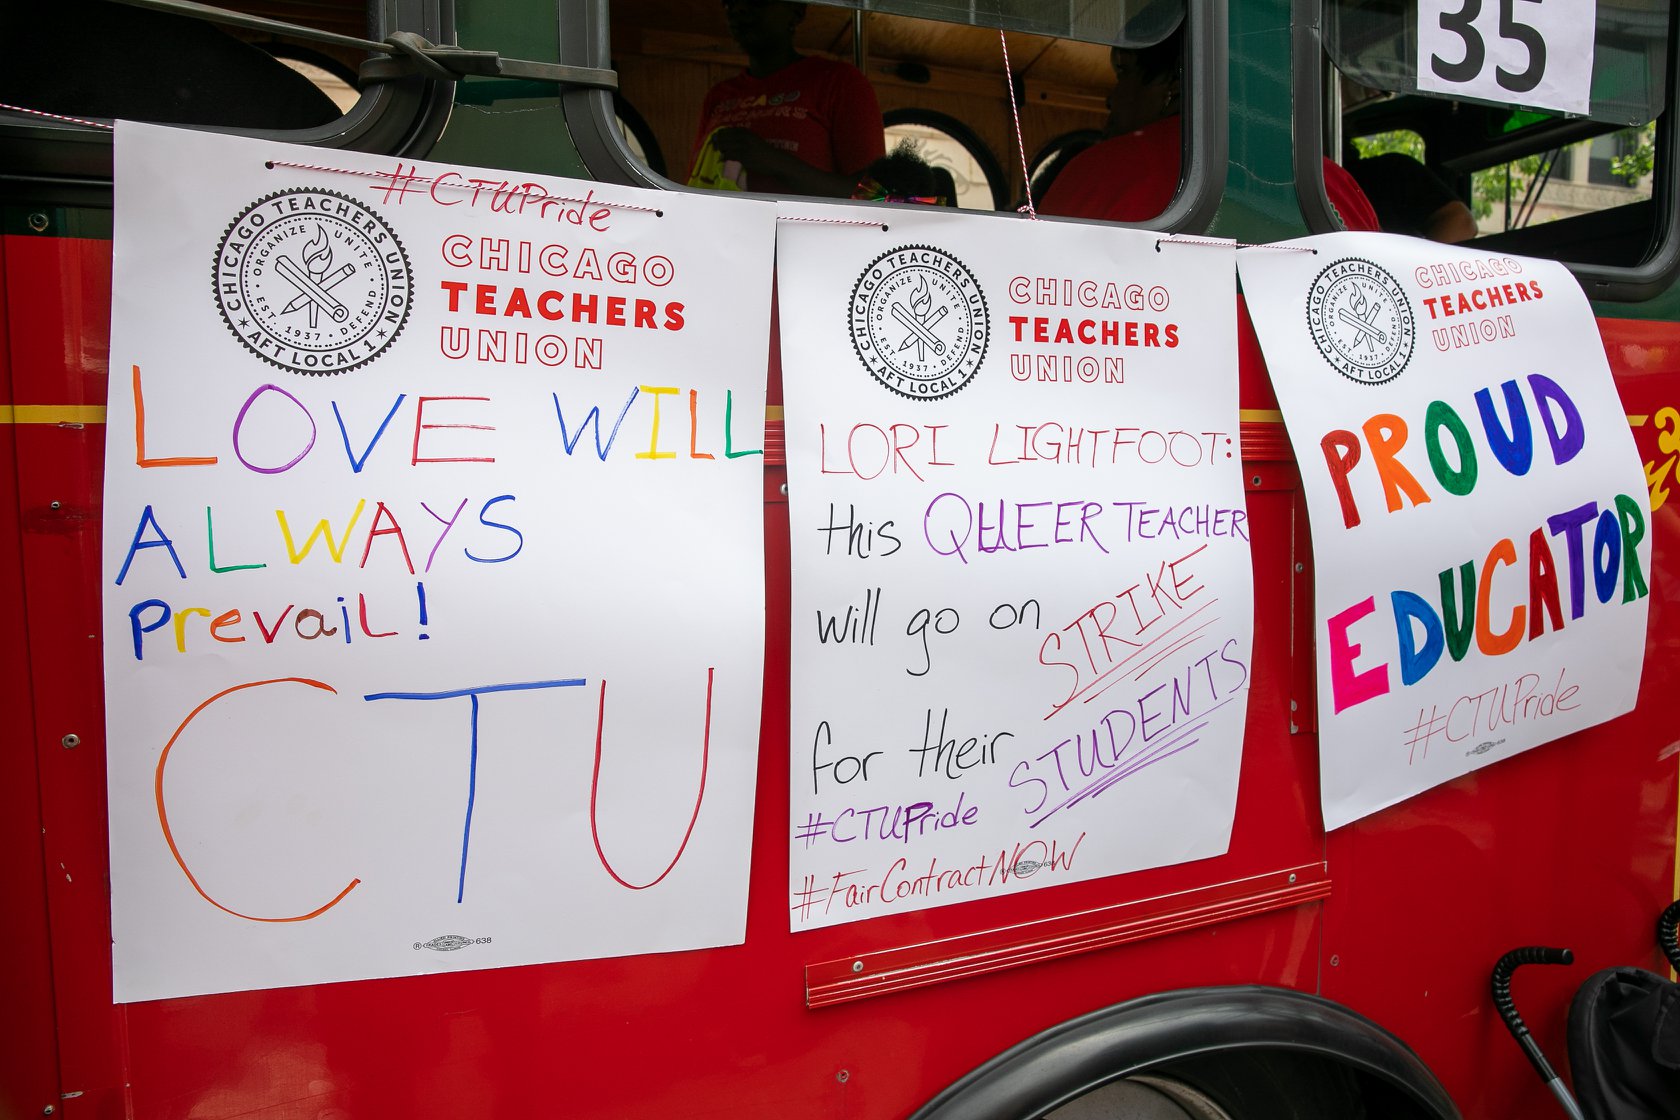 35
CHICAGO
TEACHERS
#CTUPride
CHICAGO TEACHERS UNION
ORGANIZE UNITE DEFEND
EST. 1937
AFT LOCAL 1
CHICAGO
TEACHERS
UNION
LOVE WILL
ALWAYS
PrevaiL!
CTU
638
CHICAGO TEACHERS UNION
ORGANIZE UNITE DEFEND
EST. 1937
AFT LOCAL 1
CHICAGO
TEACHERS
UNION
LORI LIGHTFOOT:
this QUEER TEACHER
will go on STRIKE
for their STUDENTS
#CTUPride
#FairContractNOW
CHICAGO TEACHERS UNION
ORGANIZE UNITE DEFEND
EST. 1937
AFT LOCAL 1
CHICAGO
TEACHERS
UNION
PROUD
EDUCATOR
#CTUPride